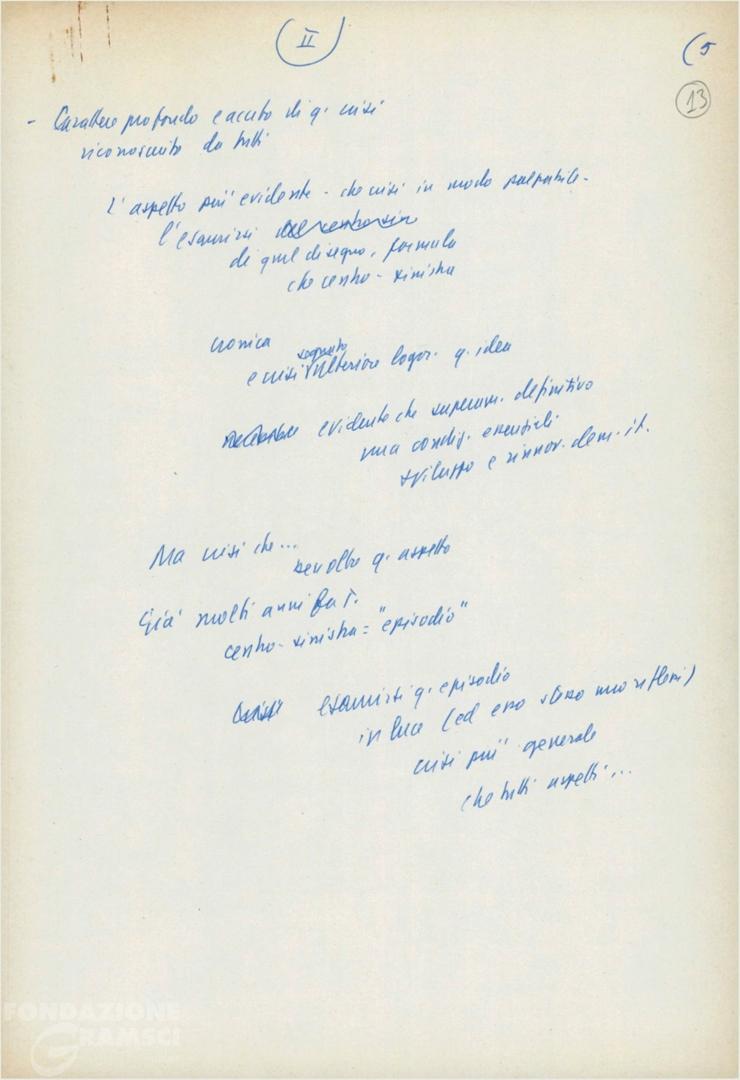 II
(5
13
- Carattere profondo e acuto di q. crisi
riconosciuto da tutti
L'aspetto più evidente - che crisi in modo palpabile -
l'esaurirsi del centro-sin
di quel disegno, formula
che centro-sinistra
cronica
segnato
e crisi ulteriore logor. q. idea
evidente che superam. definitivo
una condiz. essenziali
sviluppo e rinnov. dem. it.
Ma crisi che...
ben oltre q. aspetto
Già molti anni fa T.
centro-sinistra = "episodio"
esaurirsi q. episodio
in luce (ed esso stesso una riflessi)
crisi più generale
che tutti aspetti...
FONDAZIONE
GRAMSCI